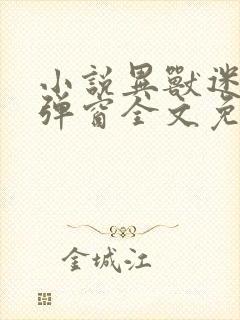 小說異獸迷
彈窗全文免
金城江